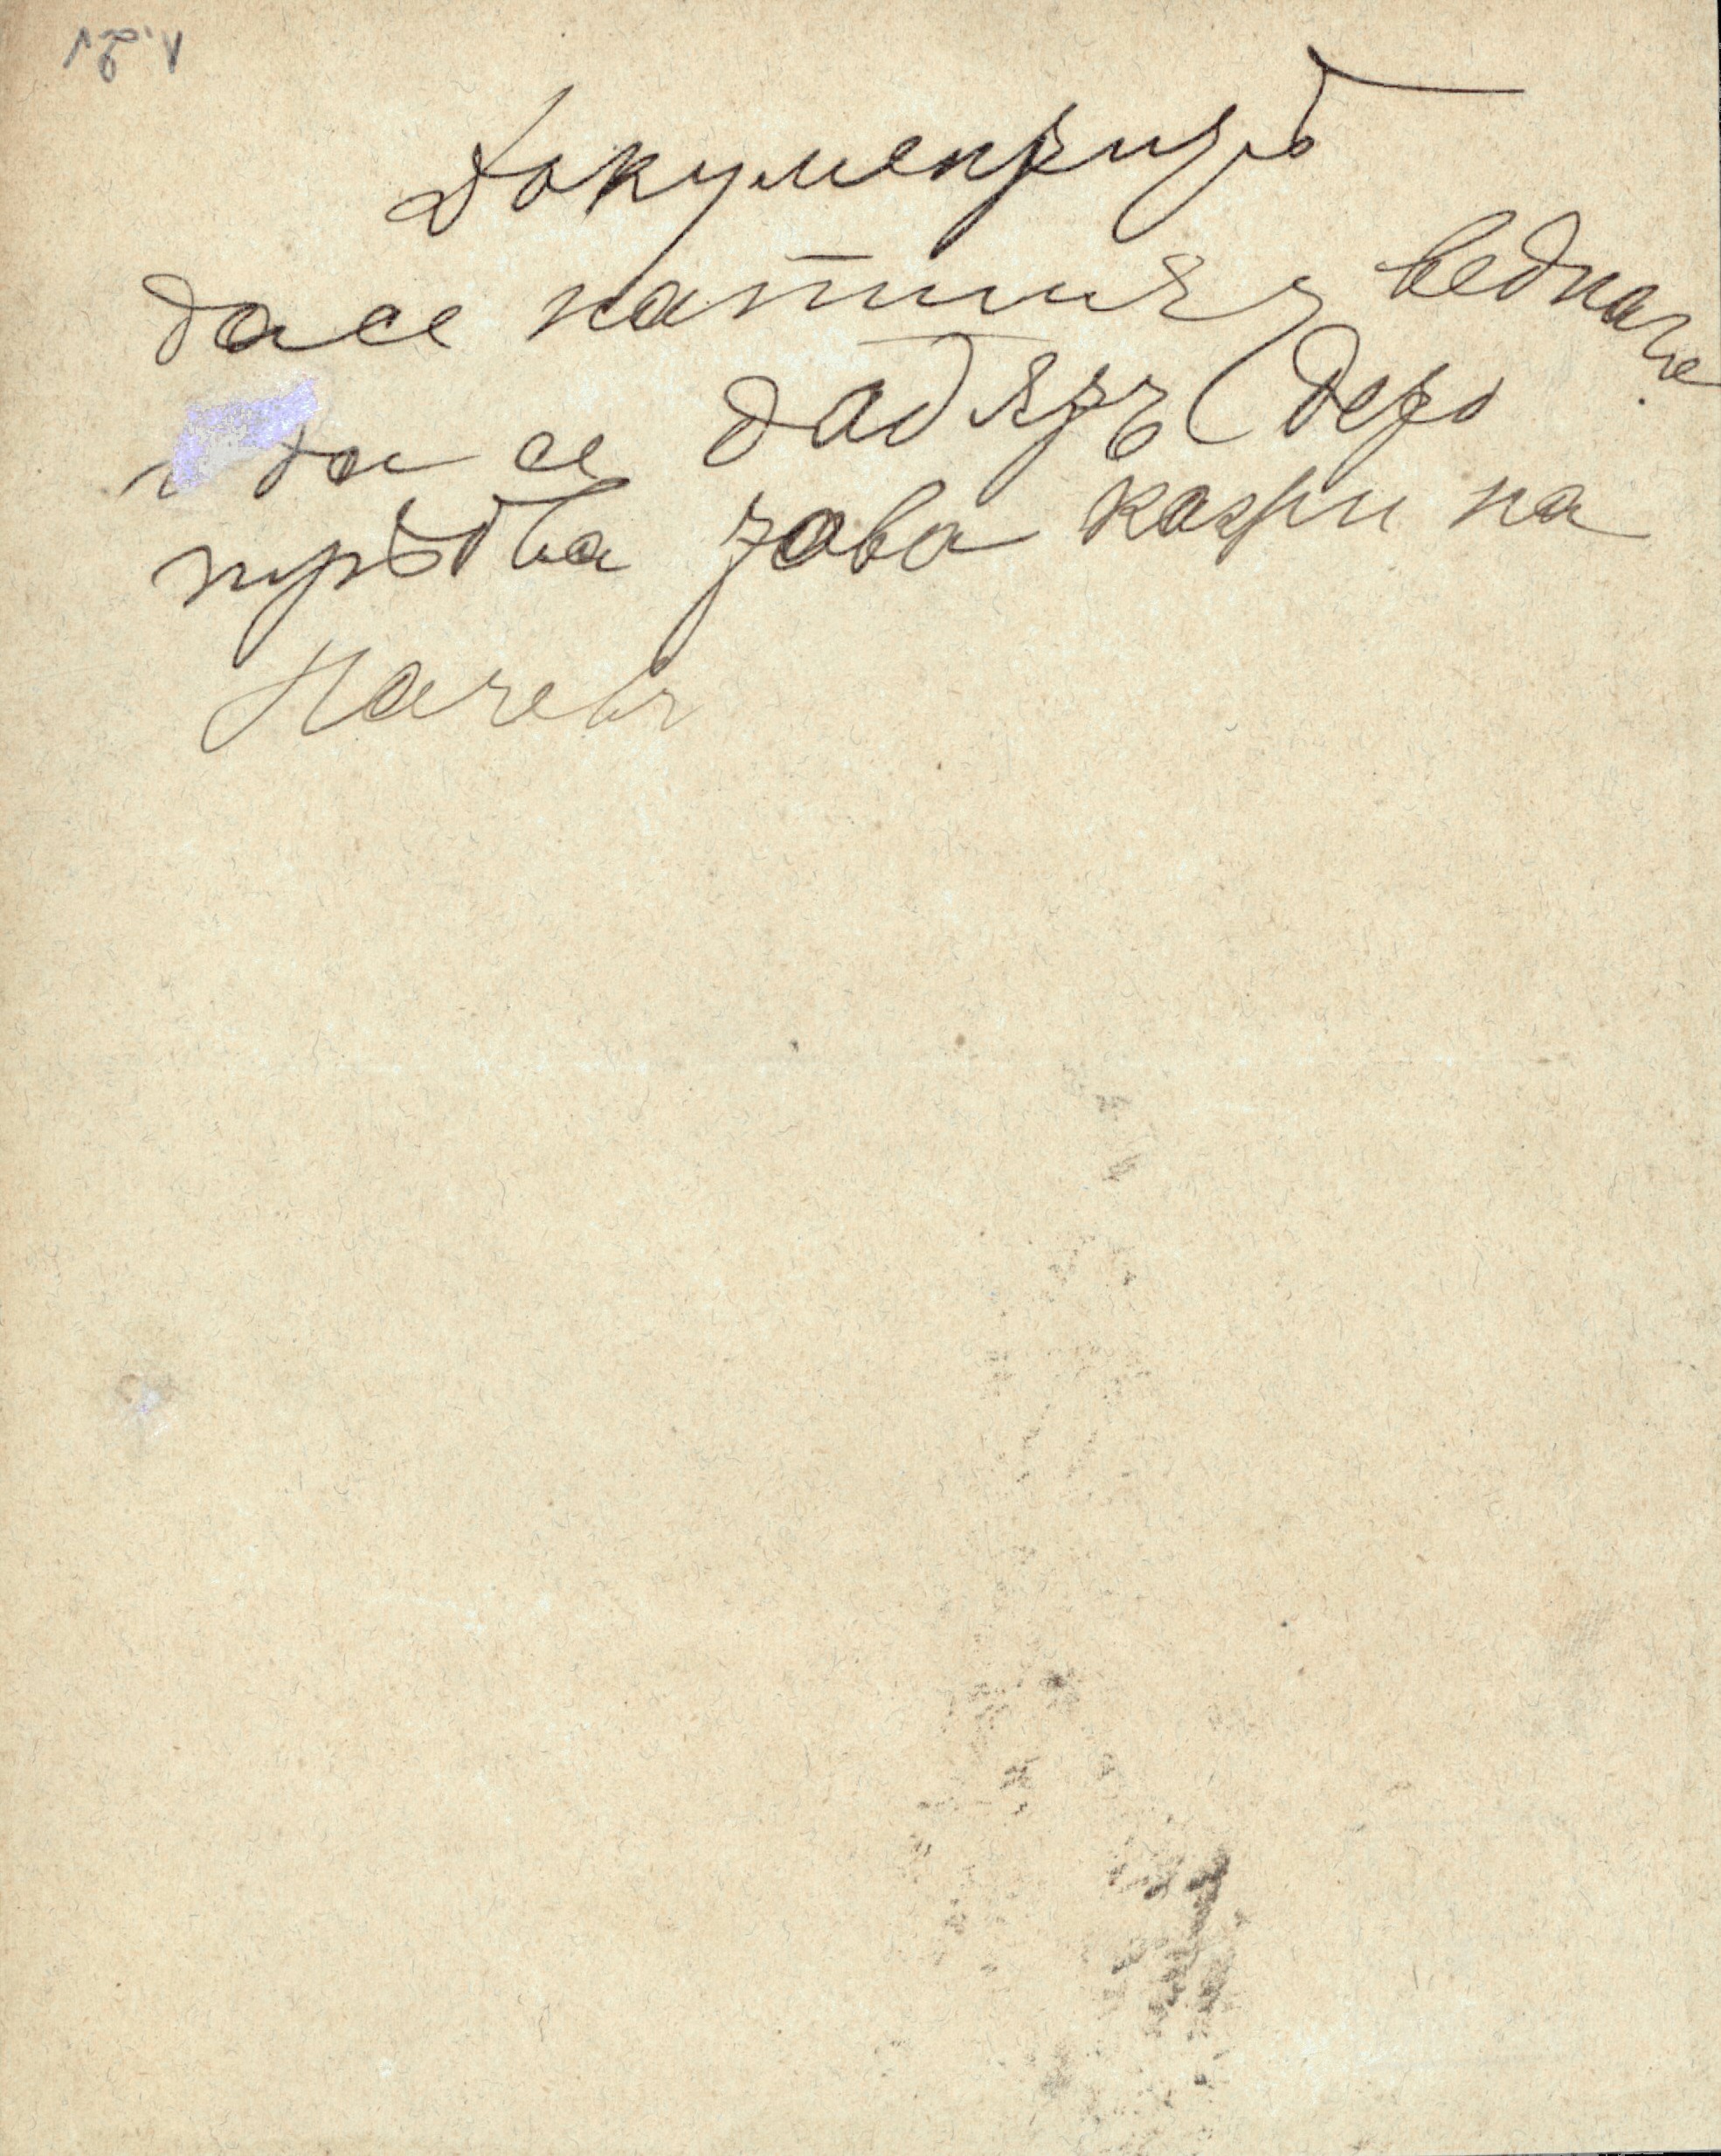 Документитѣ
да се напишат веднага
и да се дадятъ (дето
трѣбва това кажи на
Начевъ